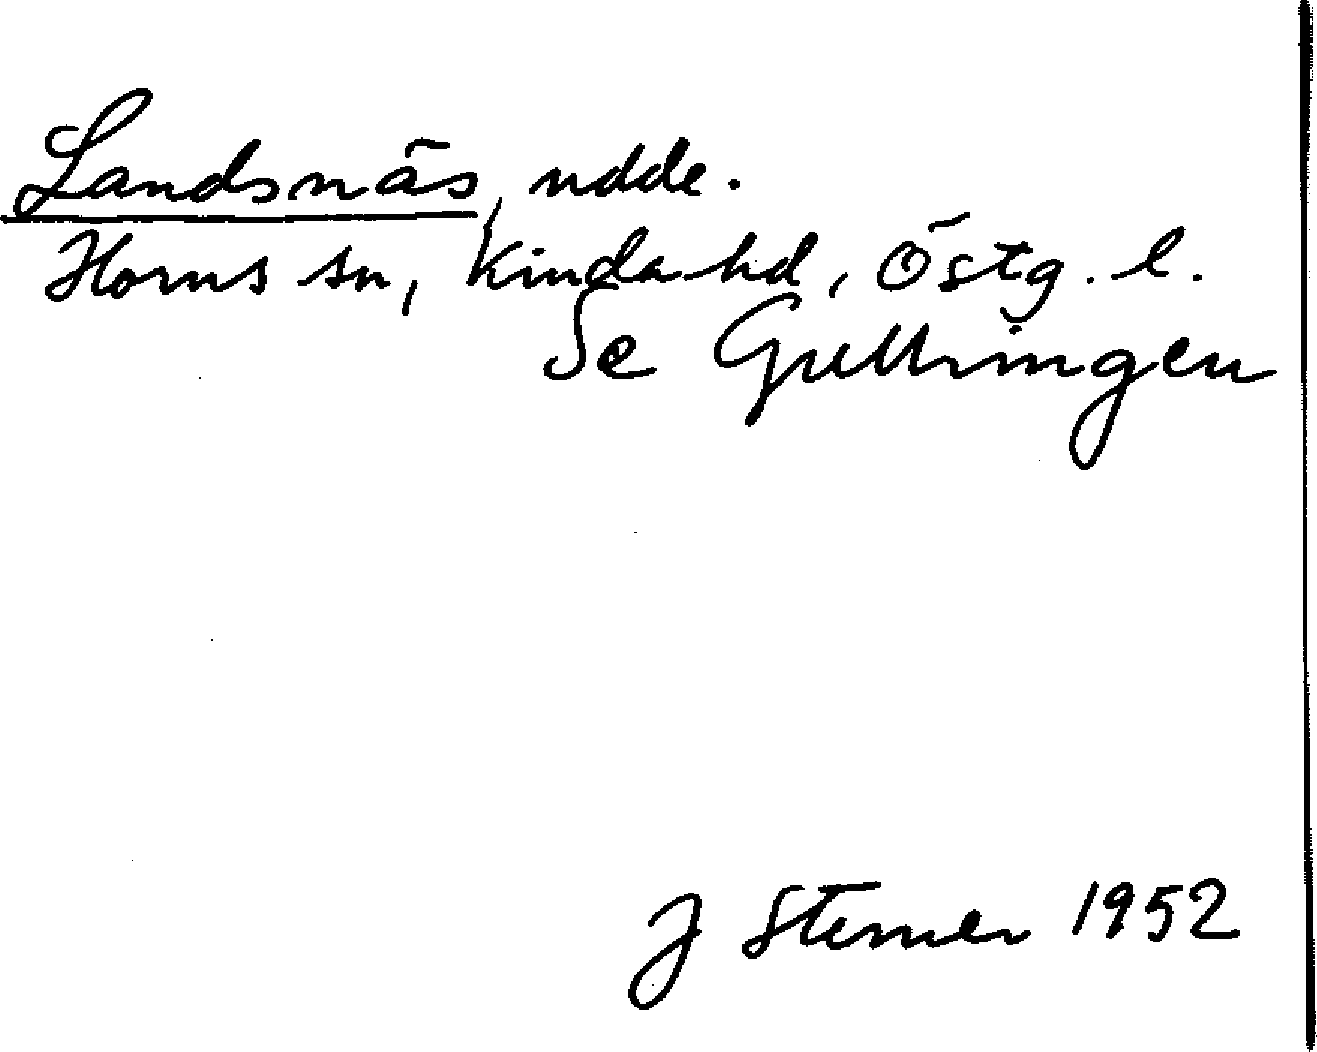 Landsnäs, udde.
Horns sn, Kinda hd, Östg. l.
Se Gullringen
J Sterner 1952